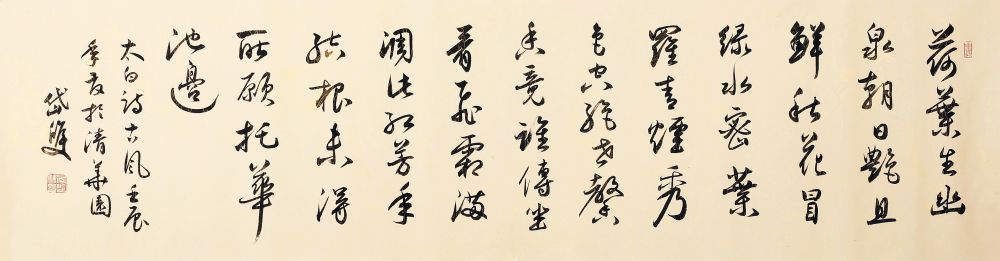 荷葉生幽
泉朝日艷且
鮮秋花冒
綠水密葉
羅青煙秀
色空絕世馨
香竟誰傳坐
看飛霜滿
凋此紅芳年
結根未得
所願托華
池邊
太白詩古風壬辰
季夏於清華園